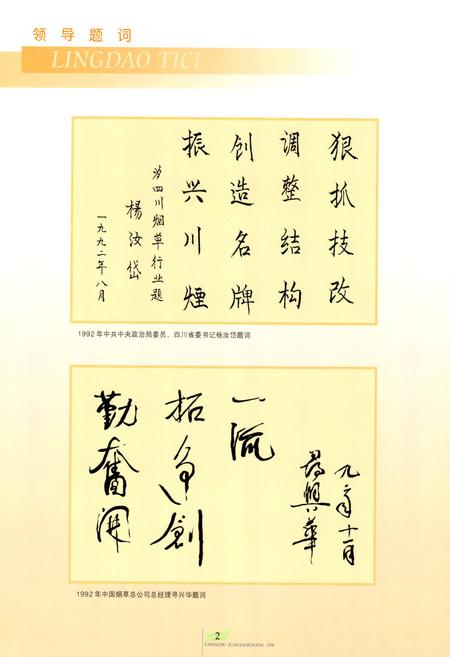 领导题词
LINGDAO TICI
狠抓技改
调整结构
创造名牌
振兴川煙
为四川烟草行业题
楊汝岱
一九九二年八月
1992年中共中央政治局委员、四川省委书记杨汝岱题词
勤奮開
拓争創
一流
尋興華
九二年十一月
1992年中国烟草总公司总经理寻兴华题词
2
CHENGDU JUANYANCHANG ZHI